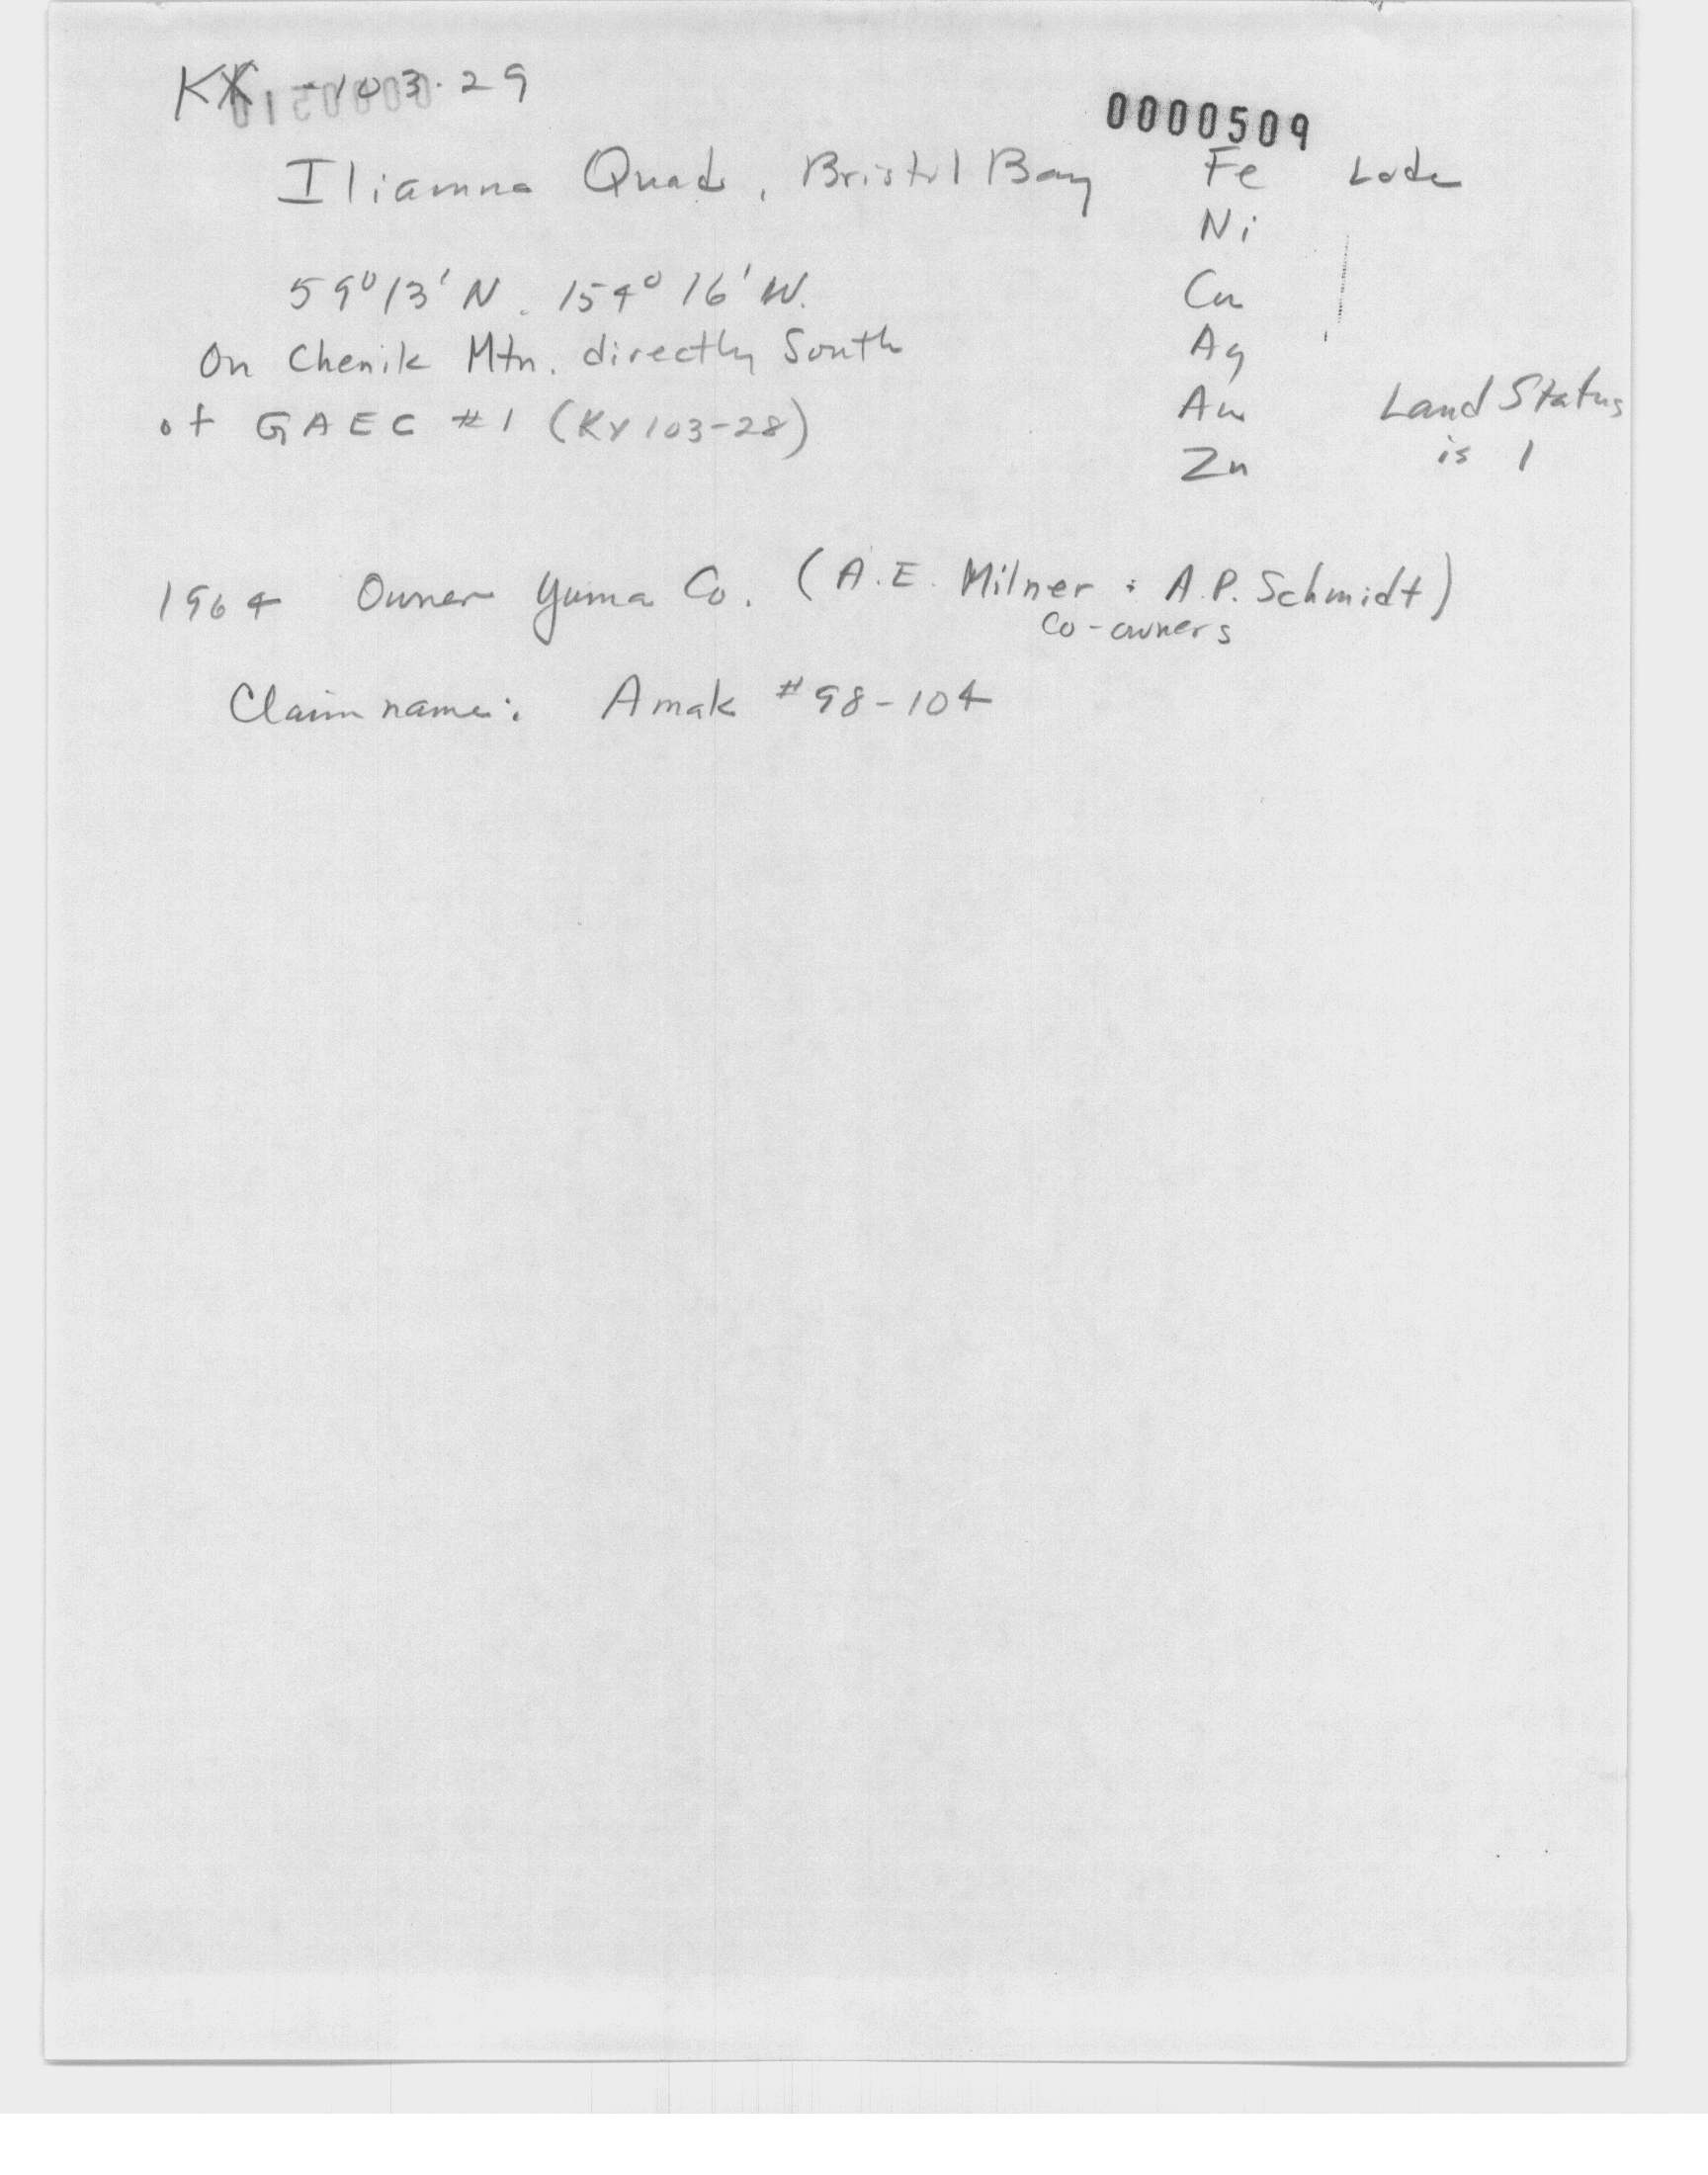 KX -103-29
0000509
Iliamna Quad, Bristol Bay Fe Lode
Ni
59°13'N. 154°16'W. Cu
On Chenik Mtn. directly South Ag
of GAEC #1 (KX103-28) Au Land Status
Zn is 1
1964 Owner Yuma Co. (A.E. Milner & A.P. Schmidt)
Co-owners
Claim name: Amak #98-104